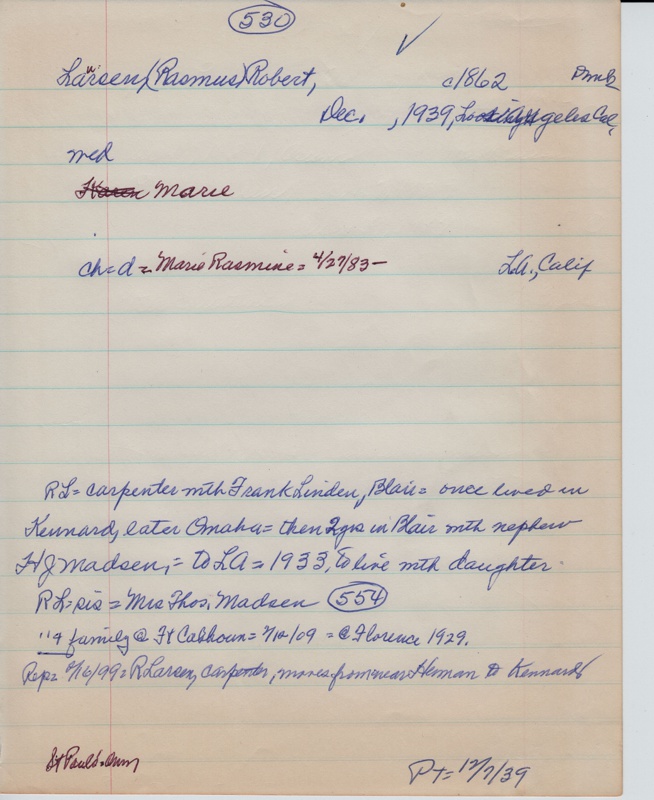 530
Larsen, (Rasmus) Robert, c1862 Dmk
Dec. , 1939, Los Angeles Cal,
med
Karen Marie
ch = d = Marie Rasmine = 4/27/83 - L.A., Calif
RL = carpenter with Frank Linden, Blair = once lived in
Kennard, later Omaha = then 2 yrs in Blair with nephew
HJ Madsen, = to LA = 1933, to live with daughter.
RL = sis = Mrs Thos, Madsen 554
" & family @ Ft Calhoun = 7/12/09 = @ Florence 1929.
Rep = /16/99 = R Larsen, carpenter, moves from near Herman to Kennard
St Paul's =
PT = 12/7/39